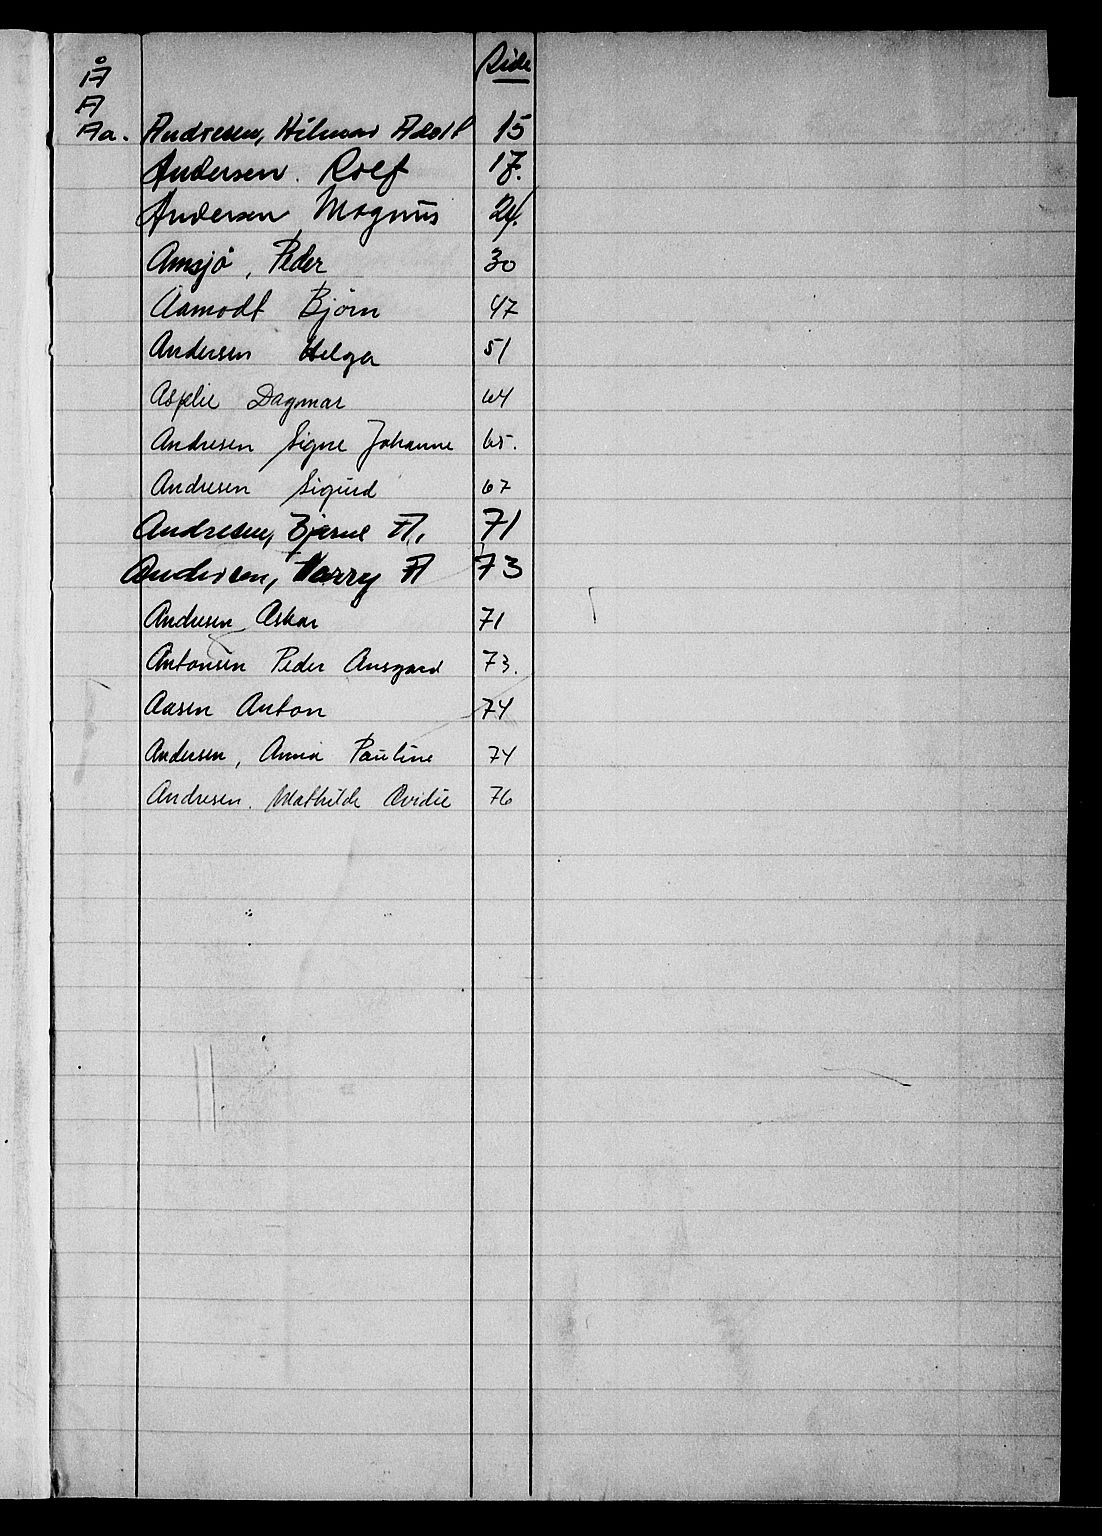 Side
Å
A
Aa. Andresen, Hilmar Adolf 15
Andersen. Rolf 17.
Andersen Magnus 24.
Amsjø, Peder 30
Aamodt Bjørn 47
Andersen Helga 51
Asplie Dagmar 64
Andresen Signe Johanne 65.
Andresen Sigurd 67
Andresen, Bjarne A. 71
Andersen, Harry A 73
Andresen Oskar 71
Antonsen Peder Ansgard 73.
Aasen Anton 74
Andersen, Anna Pauline 74
Andresen. Mathilde Ovidie 76